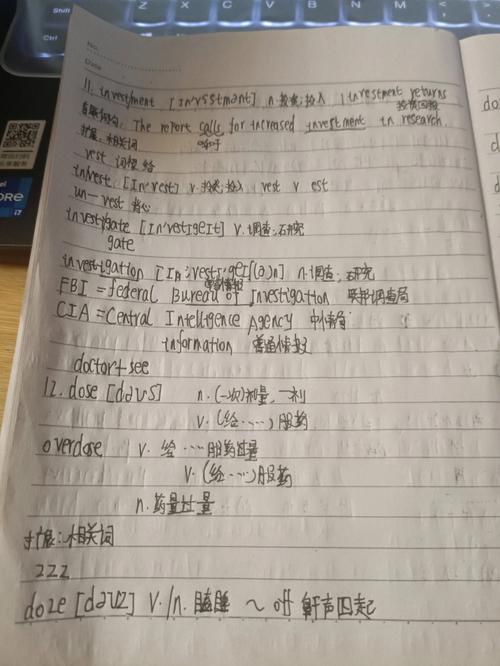 Shift
Alt
Ctrl
扫码
intel
CORE
i7
NO.
Date
11. investment [ɪn'vɛstmənt] n.投资;投入 investment returns
投资回报
The report calls for increased investment in research.
呼吁
扩展:相关词
vest 词根 给
invest [ɪn'vest] v.投资;投入 vest v est
un—vest 背心
investigate [ɪn'vestɪgeɪt] v.调查;研究
gate
investigation [ɪnˌvestɪ'geɪʃ(ə)n] n.调查;研究
FBI =federal Bureau of Investigation 联邦调查局
CIA =Central Intelligence Agency 中情局
information 普通情报
doctor+see
12. dose [dəʊs] n.(一次)剂量,一剂
v.(给……)服药
overdose v.给……服药过量
v.(给……)服药
n.药量过量
扩展:相关词
zzz
doze [dəʊz] v./n.瞌睡 ~ off 鼾声四起